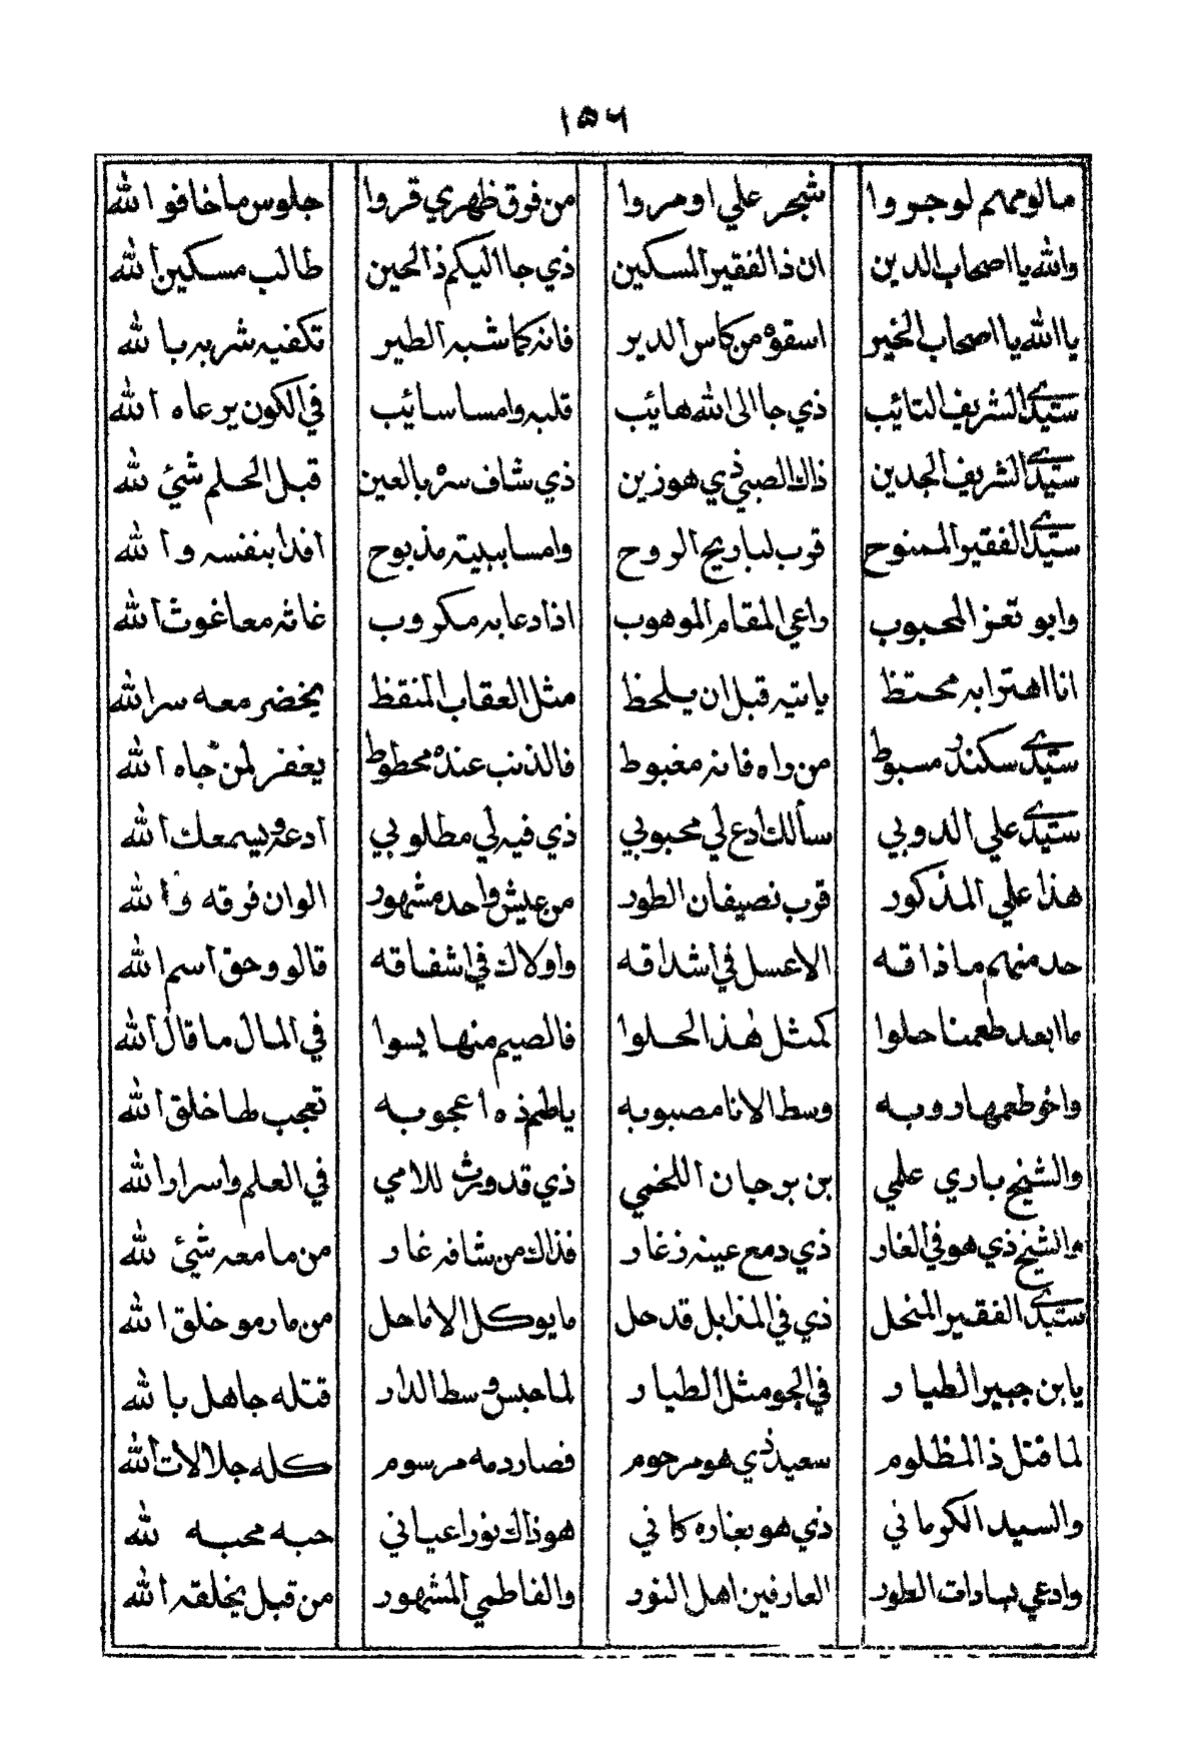 ١٥٦
مالومهم لوجروا شجر علي اومروا من فوق ظهري قروا جلوس ماخافوا الله
والله يا اصحاب الدين ان ذالفقير المسكين ذي جا اليكم ذالحين طالب مسكين الله
يا الله يا اصحاب الخير اسقوه من كاس الدير فانه كما شبه الطير تكفيه شربه بالله
سيدي الشريف التائب ذي جا الى الله هائب قلبه وامسا سائب في الكون يرعاه الله
سيدي الشريف الجدين ذاك الصبي ذي هو زين ذي شاف سره بالعين قبل الحلم شيئ لله
سيدي الفقير الممنوح قرب لباريح الروح وامسا ببيته مذبوح افدا بنفسه والله
وابو تعز المحبوب واعي المقام الموهوب اذا دعابه مكروب غاثه معاغوث الله
انا اهترابه محتظ ياتيه قبل ان يلحظ مثل العقاب المنقظ يخضر معه سر الله
سيدي سكندر مسبوط من راه فانه مغبوط فالذنب عنده محطوط يغفر لمن جاه الله
سيدي علي الدوبي سألك ادع لي محبوبي ذي فيه لي مطلوبي ادعه يسمعك الله
هذا علي المذكور قرب نصيفان الطور من عيش واحد مشهور الوان فرقه والله
حد منهم ماذاقه الاعسل في اشداقه واولاك في اشفاقه قالو وحق اسم الله
ما ابعد طعمنا حلوا كمثل هذا الحلوا فالصيم منها يسوا في المال ما قال الله
واخو طعمها روبه وسط الانا مصبوبه ياطم ذه اعجوبه تعجب طا خلق الله
والشيخ باري علمي بن برجان اللخمي ذي قد ورث للامي في العلم واسرار الله
والشيخ ذي هو في الغار ذي دمع عينه زغار فذاك من شافه غار من مامعه شيئ لله
سيدي الفقير المنحل ذي في المذابل قد حل مايوكل الا ماحل من مارموخلق الله
يابن جبير الطيار في الجو مثل الطيار لما حبس وسط الدار قتله جاهل بالله
لما قتل ذالمظلوم سعيد ذي هو مرحوم فصار دمه مرسوم كله جلالات الله
والسيد الكرماني ذي هو بغاره كاني هو ذاك نور اعياني حبه محبه لله
وادعي بسادات الطور العارفين اهل النور والفاطمي المشهور من قبل يخلقه الله